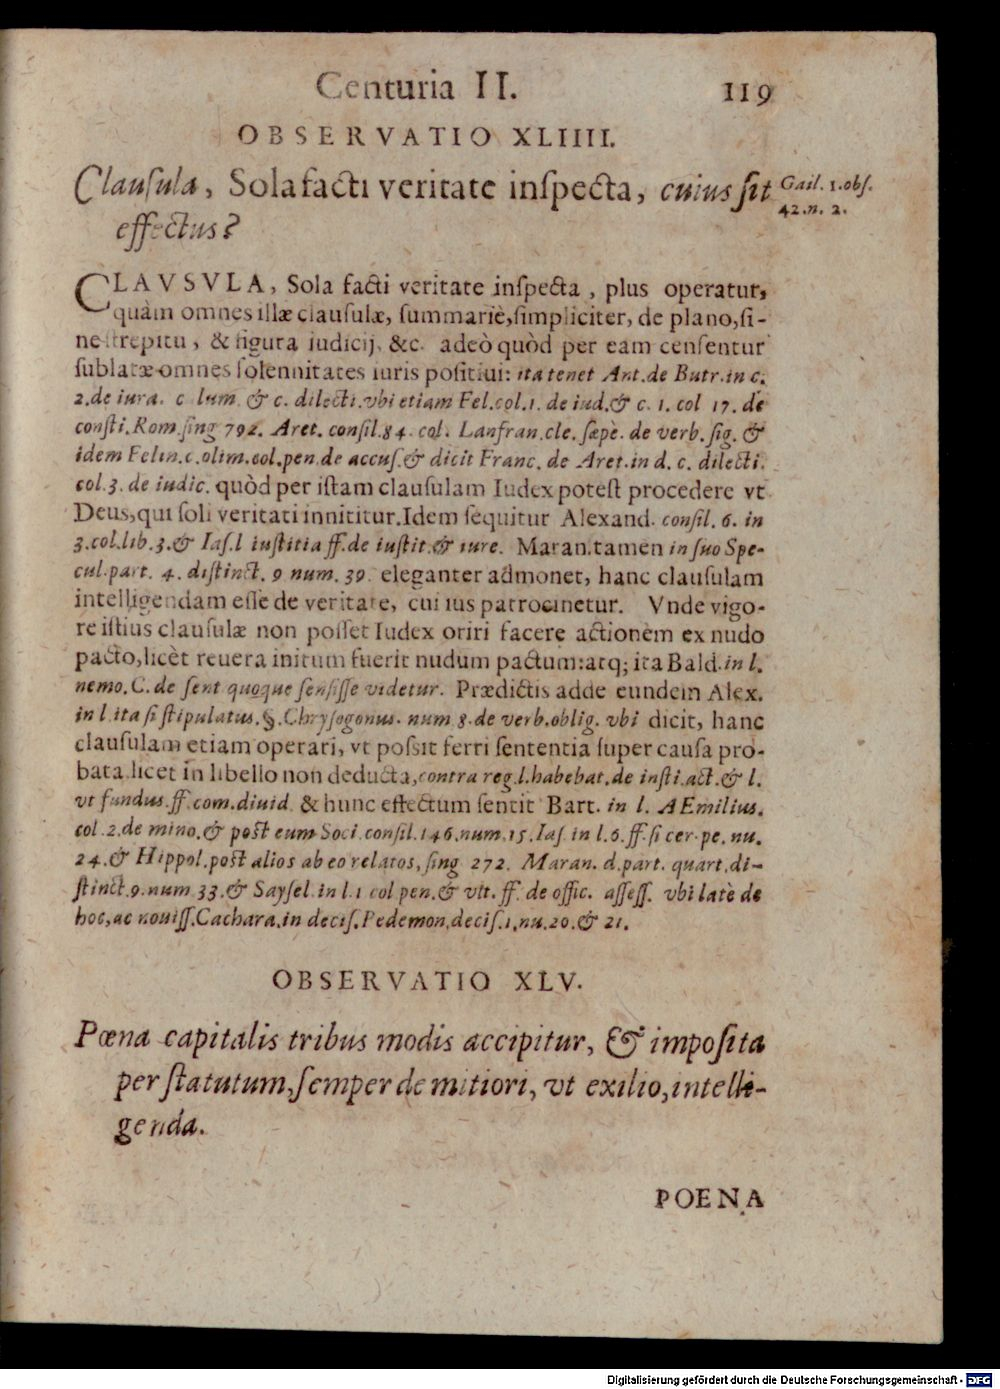 Centuria II. 119
OBSERVATIO XLIIII.
Clauſula, Sola facti veritate inſpecta, cuius ſit
effectus?
Gail. 1. obſ.
42. n. 2.
CLAVSVLA, Sola facti veritate inſpecta, plus operatur,
quàm omnes illæ clauſulæ, ſummariè, ſimpliciter, de plano, ſi-
ne ſtrepitu, & figura iudicij, &c. adeò quòd per eam cenſentur
ſublatæ omnes ſolennitates iuris poſitiui: ita tenet Ant. de Butr. in c.
2. de iura. c lum. & c. dilecti. vbi etiam Fel. col. 1. de iud. & c. 1. col 17. de
conſti. Rom. ſing 792. Aret. conſil. 84. col. Lanfran. cle. ſæpè. de verb. ſig. &
idem Felin. c. olim. col. pen. de accuſ. & dicit Franc. de Aret. in d. c. dilecti.
col. 3. de iudic. quòd per iſtam clauſulam Iudex poteſt procedere vt
Deus, qui ſoli veritati innititur. Idem ſequitur Alexand. conſil. 6. in
3. col. lib. 3. & Iaſ. l iuſtitia ff. de iuſtit. & iure. Maran. tamen in ſuo Spe-
cul. part. 4. diſtinct. 9 num. 39. eleganter admonet, hanc clauſulam
intelligendam eſſe de veritate, cui ius patrocinetur. Vnde vigo-
re iſtius clauſulæ non poſſet Iudex oriri facere actionem ex nudo
pacto, licèt reuera initum fuerit nudum pactum: atq; ita Bald. in l.
nemo. C. de ſent quoque ſenſiſſe videtur. Prædictis adde eundem Alex.
in l ita ſi ſtipulatus. §. Chryſogonus. num 8. de verb. oblig. vbi dicit, hanc
clauſulam etiam operari, vt poſsit ferri ſententia ſuper cauſa pro-
bata. licet in libello non deducta, contra reg. l. habebat. de inſti. act. & l.
vt fundus. ff. com. diuid. & hunc effectum ſentit Bart. in l. AEmilius.
col. 2. de mino. & poſt eum Soci. conſil. 146. num. 15. Iaſ. in l. 6. ff. ſi cer. pe. nu.
24. & Hippol. poſt alios ab eo relatos, ſing 272. Maran. d. part. quart. di-
ſtinct. 9. num 33. & Sayſel. in l. 1 col pen. & vlt. ff. de offic. aſſeſſ. vbi latè de
hoc, ac nouiſſ. Cachara. in deciſ. Pedemon. deciſ. 1. nu. 20. & 21.
OBSERVATIO XLV.
Pœna capitalis tribus modis accipitur, & impoſita
per ſtatutum, ſemper de mitiori, vt exilio, intelli-
genda.
POENA
Digitalisierung gefördert durch die Deutsche Forschungsgemeinschaft - DFG